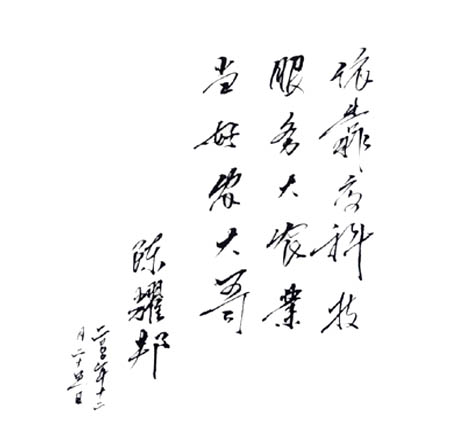 依靠高科技
服务大农业
当好农大哥
陈耀邦
二〇〇〇年十二
月二十四日